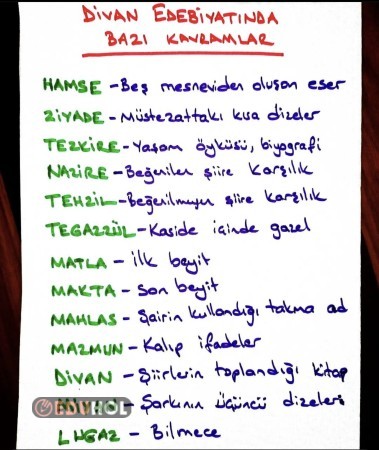 DİVAN EDEBİYATINDA
BAZI KAVRAMLAR
HAMSE - Beş mesneviden oluşan eser
ZİYADE - Müstezattaki kısa dizeler
TEZKİRE - Yaşam öyküsü, biyografi
NAZİRE - Beğenilen şiire karşılık
TEHZİL - Beğenilmeyen şiire karşılık
TEGAZZÜL - Kaside içinde gazel
MATLA - İlk beyit
MAKTA - Son beyit
MAHLAS - Şairin kullandığı takma ad
MAZMUN - Kalıp ifadeler
DİVAN - Şiirlerin toplandığı kitap
EDUHOL - Şarkının üçüncü dizeleri
LUGAZ - Bilmece